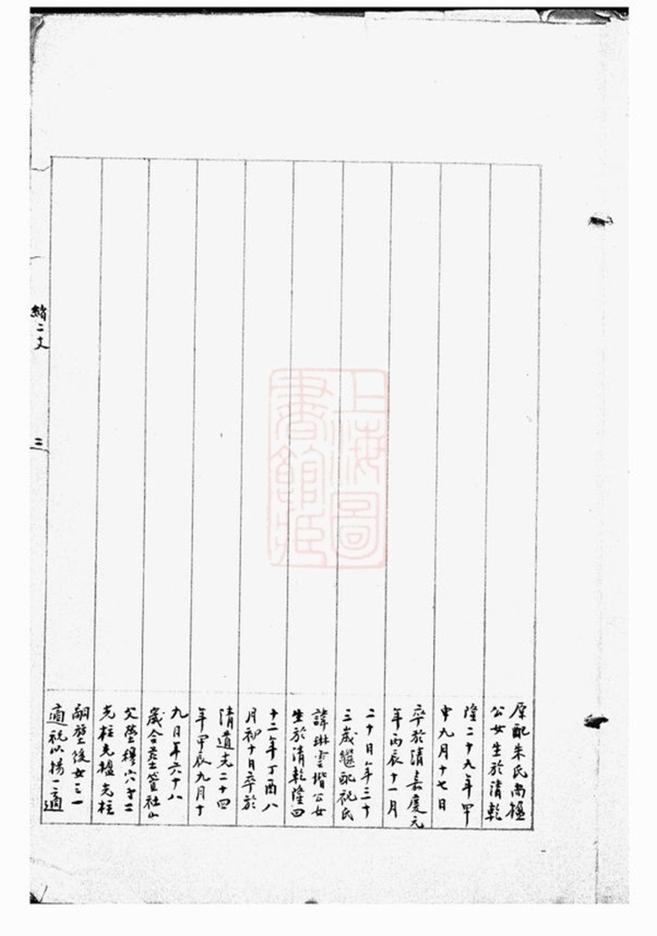 原配朱氏尚楹
公女生於清乾
隆二十九年甲
申九月十七日
卒於清嘉慶元
年丙辰十一月
二十日年三十
三歲繼配祝氏
諱琳雲堦公女
生於清乾隆四
十二年丁酉八
月初十日卒於
清道光二十四
年甲辰九月十
九日年六十八
歲合葬笪社山
父塋穆穴子二
光柱光楹光柱
嗣堂後女三一
適祝以揚一適
二
上海圖
書館藏